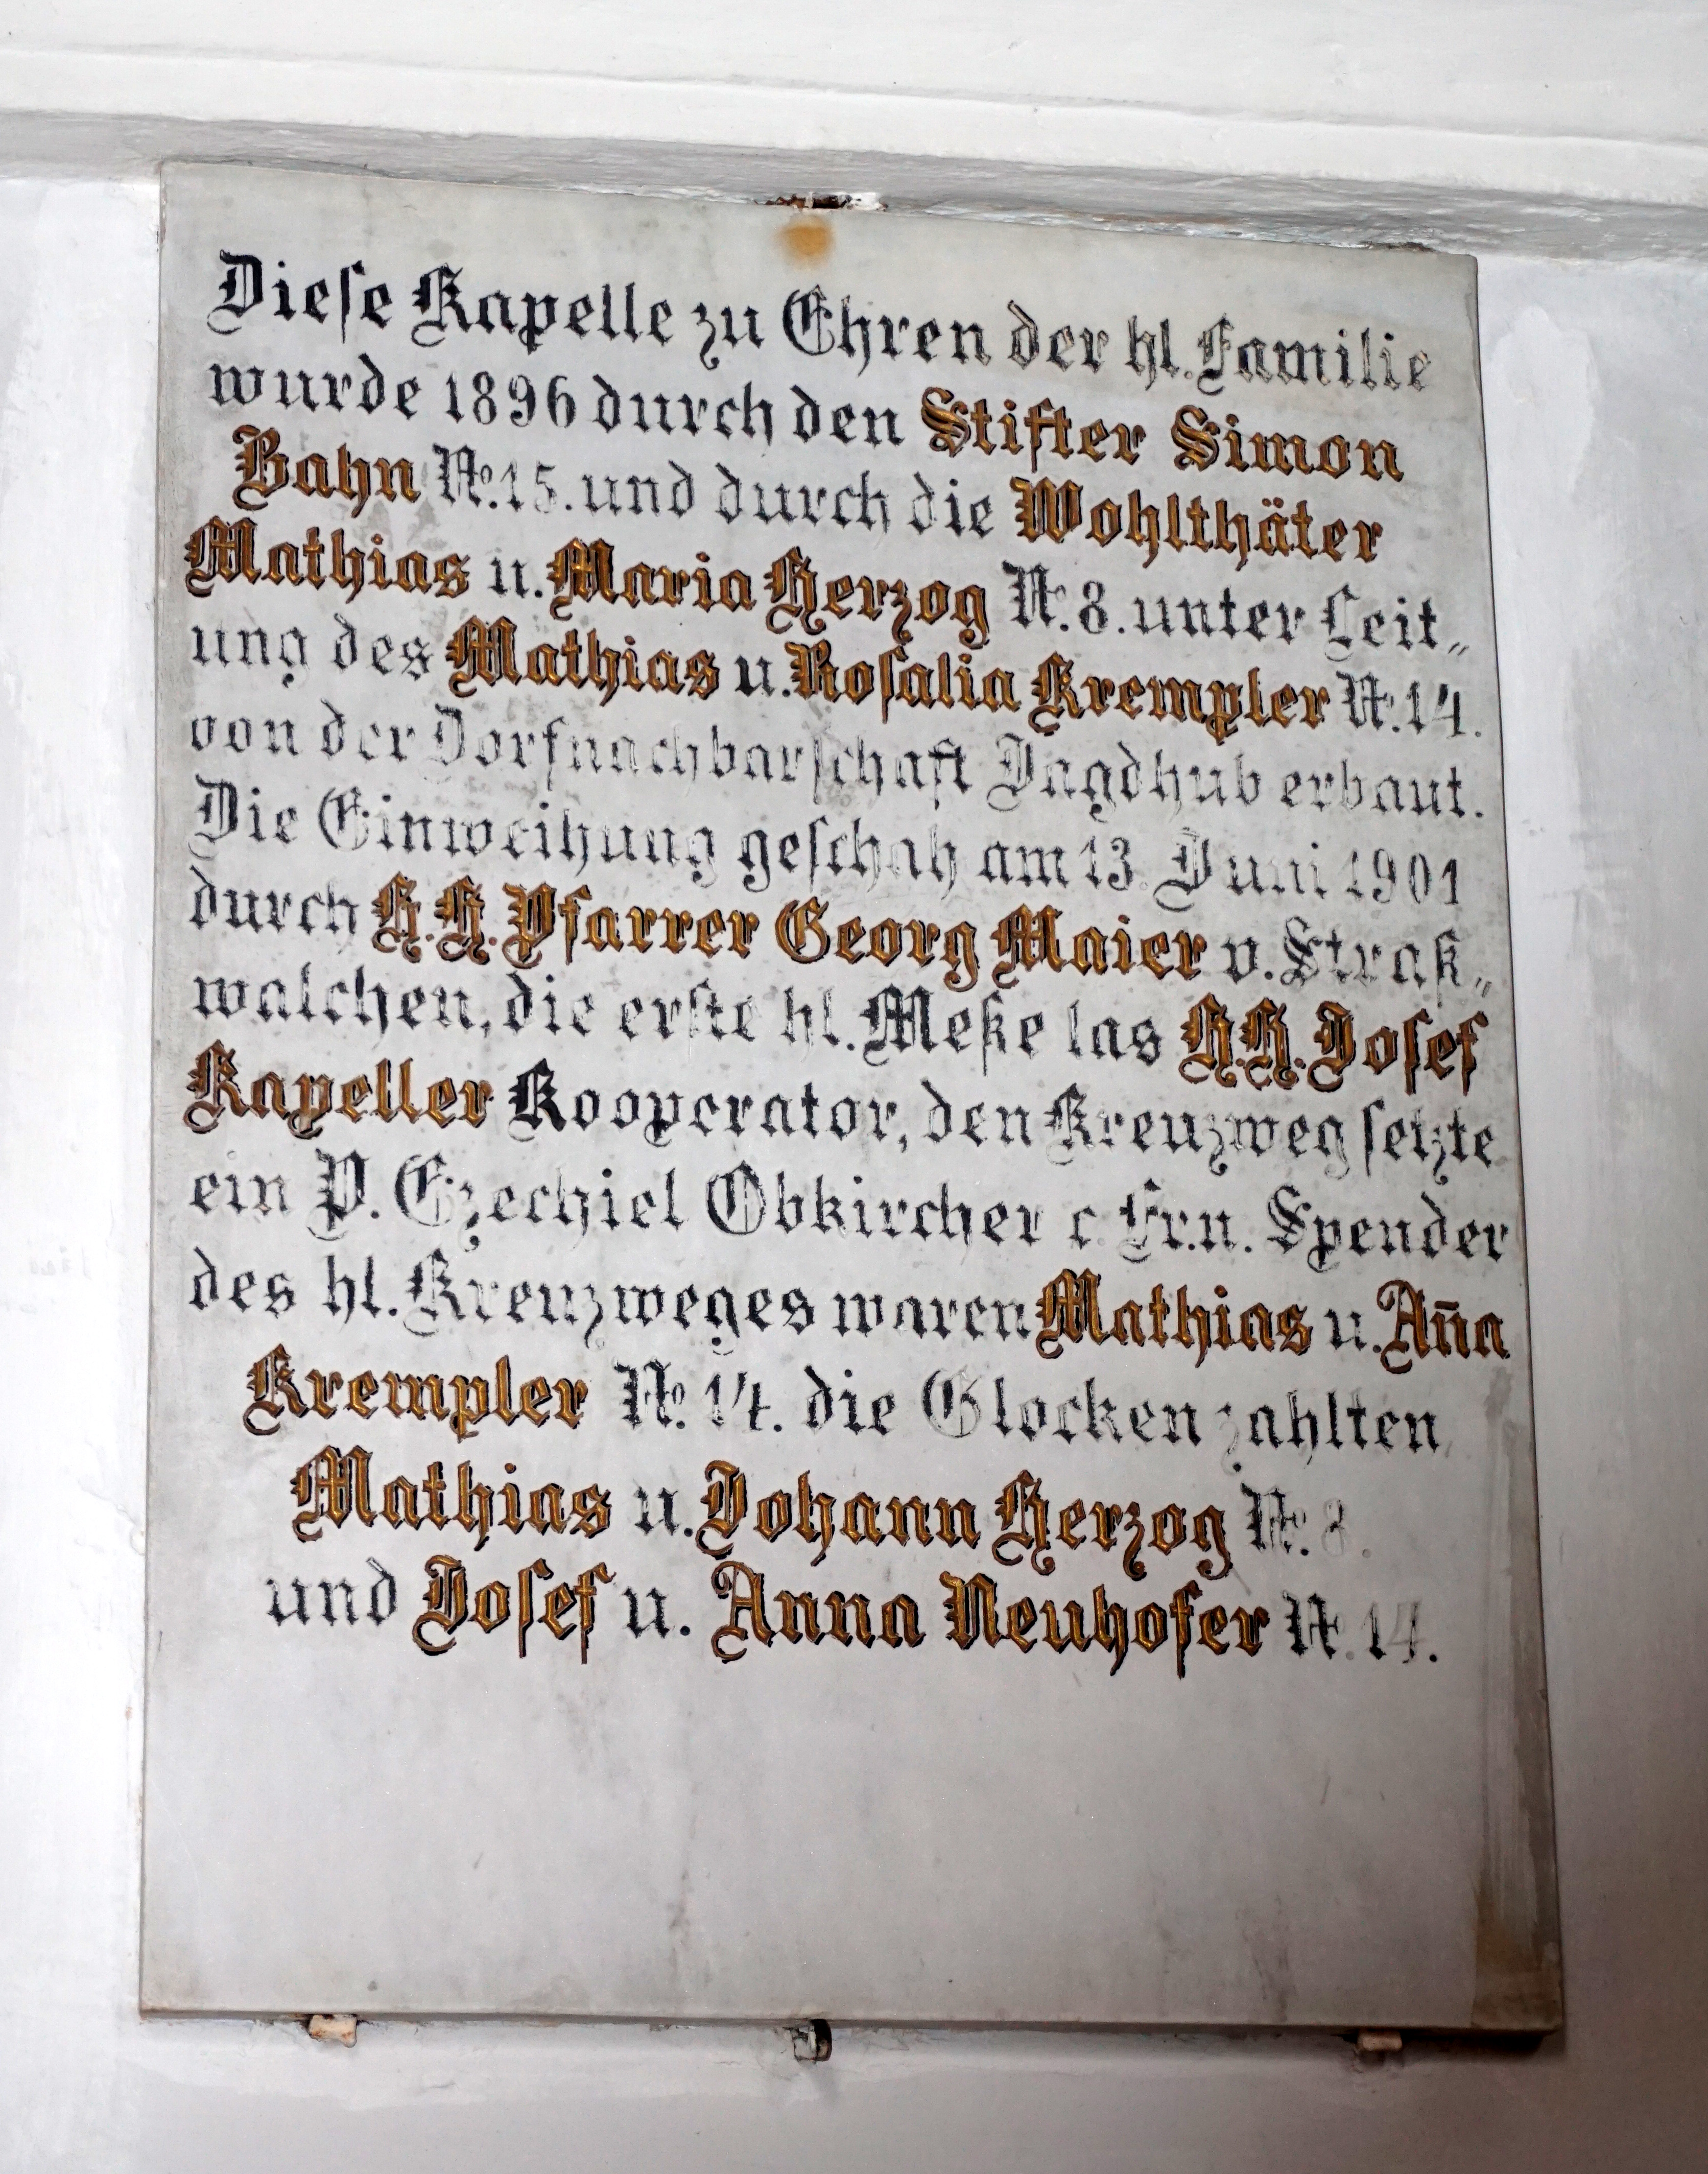 Dieſe Kapelle zu Ehren der hl. Familie
wurde 1896 durch den Stifter Simon
Bahn No. 15. und durch die Wohlthäter
Mathias u. Maria Herzog No. 8. unter Leit„
ung des Mathias u. Roſalia Krempler No. 14.
von der Dorfnachbarſchaft Jagdhub erbaut.
Die Einweihung geſchah am 13. Juni 1901
durch H. H. Pfarrer Georg Maier v. Straß„
walchen, die erſte hl. Meße las H. H. Joſef
Kapeller Kooperator, den Kreuzweg ſetzte
ein P. Ezechiel Obkircher c. Fr. n. Spender
des hl. Kreuzweges waren Mathias u. Aña
Krempler No. 14. die Glocken zahlten
Mathias u. Johann Herzog No. 8.
und Joſef u. Anna Neuhofer No. 14.